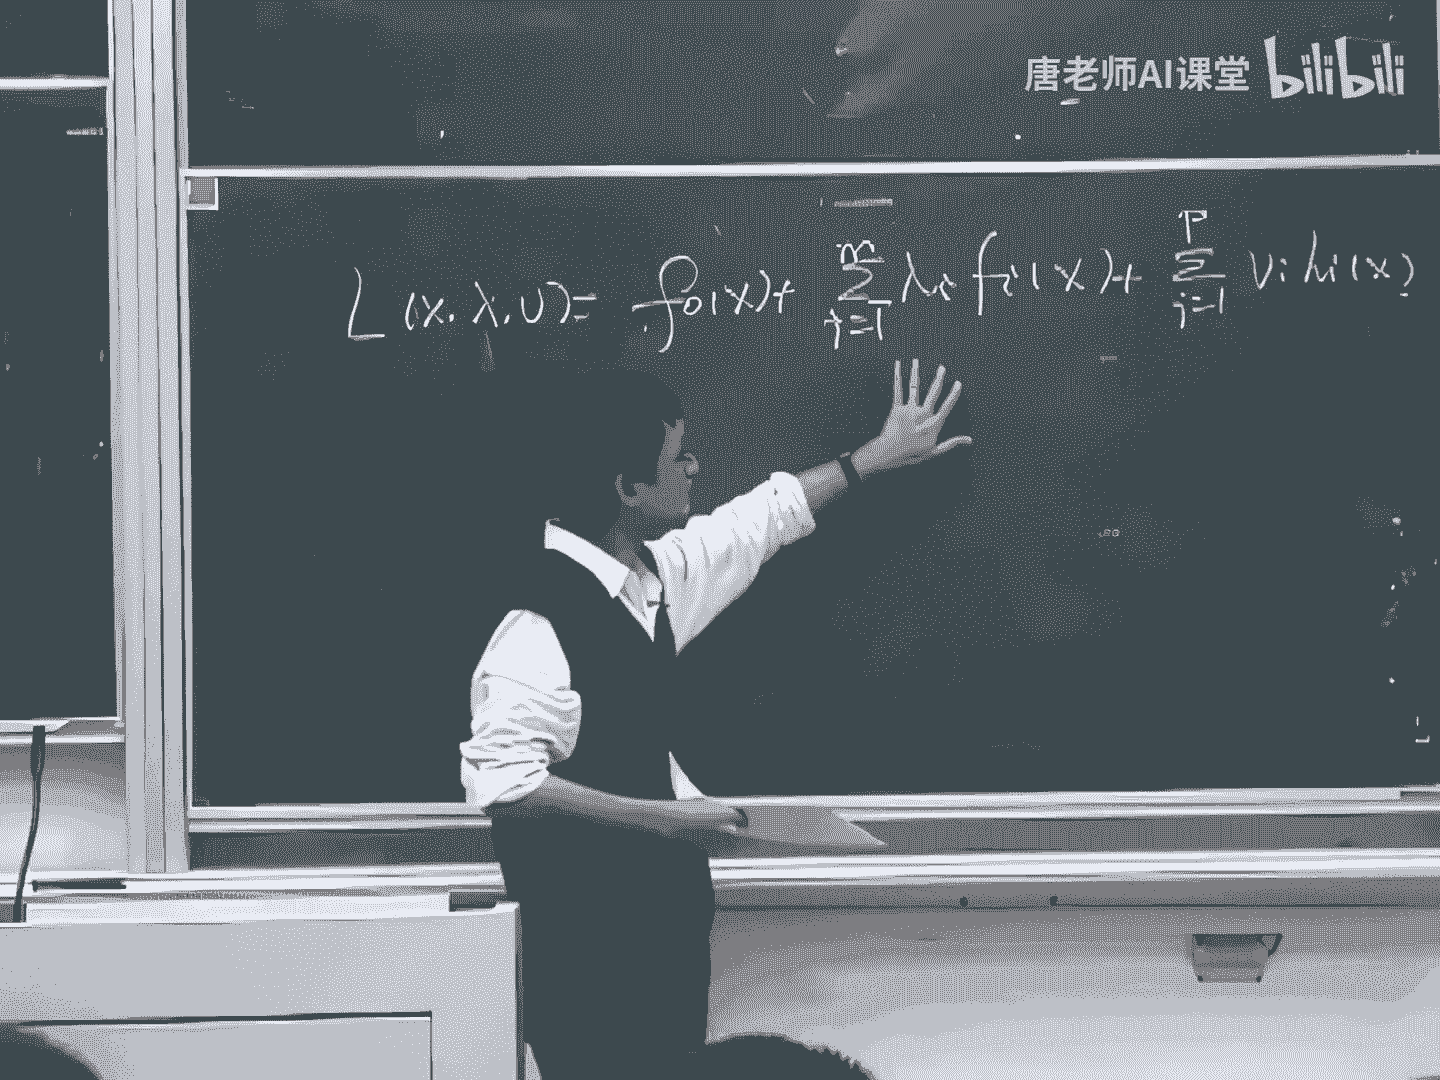 唐老师AI课堂 bilibili
L(x, λ, υ) = f₀(x) + Σᵢ₌₁ᵐ λᵢ fᵢ(x) + Σᵢ₌₁ᵖ νᵢ hᵢ(x)